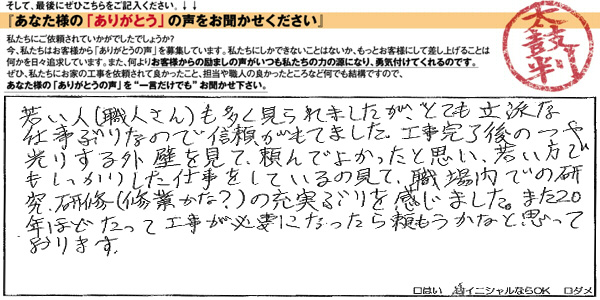 そして、最後にぜひこちらをご記入ください。↓↓↓
『あなた様の「ありがとう」の声をお聞かせください』
私たちにご依頼されていかがでしたでしょうか?
今、私たちはお客様から「ありがとうの声」を募集しています。私たちにしかできないことはないか、もっとお客様にして差し上げることは
何かを日々追求しています。また、何よりお客様からの励ましの声がいつも私たちの力の源になり、勇気付けてくれるのです。
ぜひ、私たちにお家の工事を依頼されて良かったこと、担当や職人の良かったところなど何でも結構ですので、
あなた様の「ありがとうの声」を“一言だけでも”お聞かせ下さい。
太鼓判
若い人(職人さん)も多く見られましたが、とても立派な
仕事ぶりなので信頼がもてました。工事完了後のつや
光りする外壁を見て、頼んでよかったと思い、若い方で
もしっかりした仕事をしているの見て、職場内での研
究、研修(修業かな?)の充実ぶりを感じました。また20
年ほどたって工事が必要になったら頼もうかなと思って
おります。
口はい イニシャルならOK 口ダメ